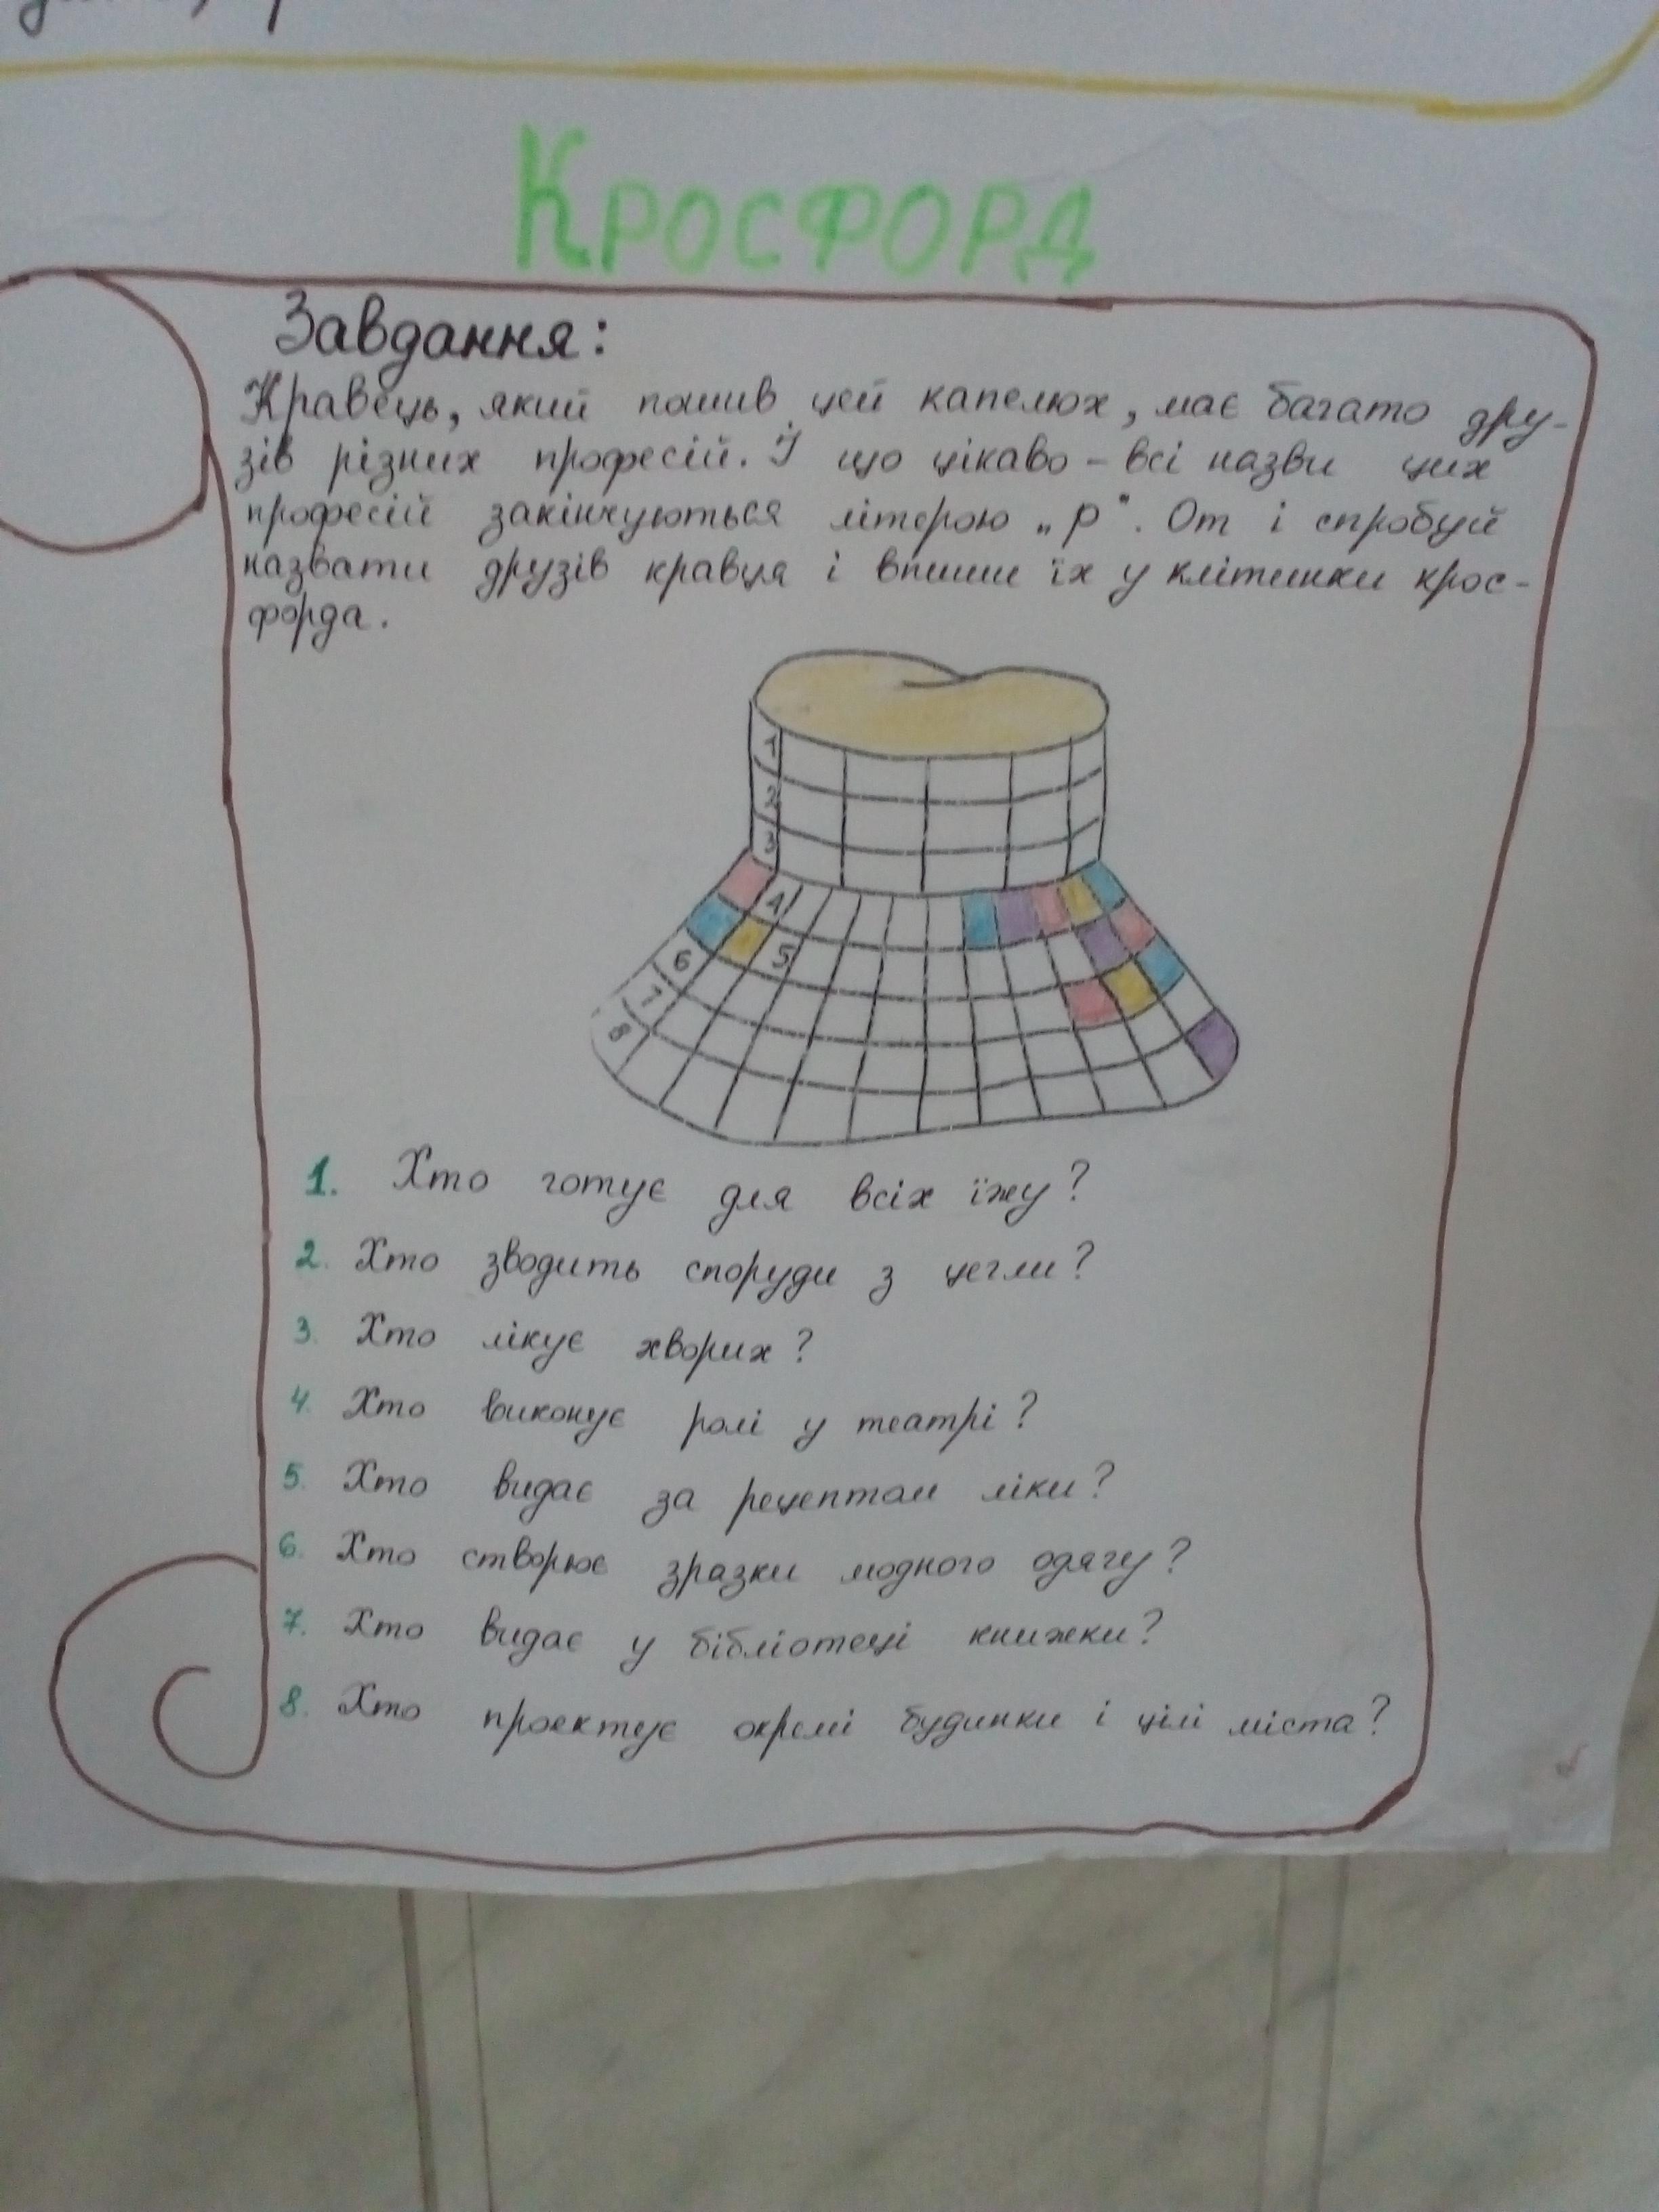 Кросфорд
Завдання:
Кравець, який пошив цей капелюх, має багато дру-
зів різних професій. І що цікаво – всі назви цих
професій закінчуються літерою „р". От і спробуй
назвати друзів кравця і впиши їх у клітинки крос-
форда.
1
2
3
4
5
6
7
8
1. Хто готує для всіх їжу?
2. Хто зводить споруди з цегли?
3. Хто лікує хворих?
4. Хто виконує ролі у театрі?
5. Хто видає за рецептом ліки?
6. Хто створює зразки модного одягу?
7. Хто видає у бібліотеці книжки?
8. Хто проектує окремі будинки і цілі міста?